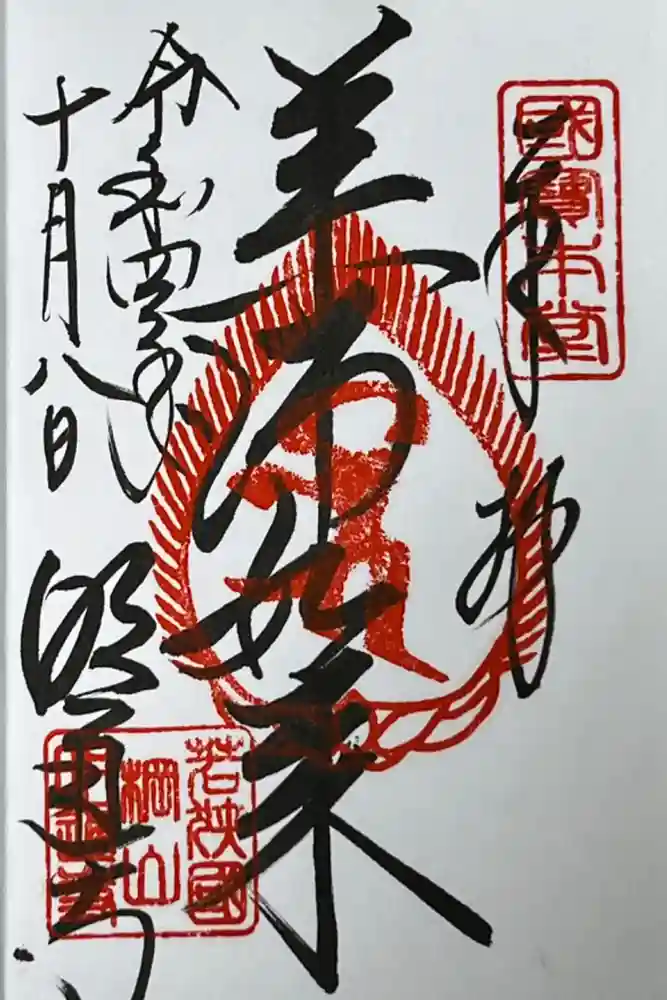 奉拝
國寶本堂
薬師如来
令和四年
十月八日
明通寺
若狭國
棡山
明通寺